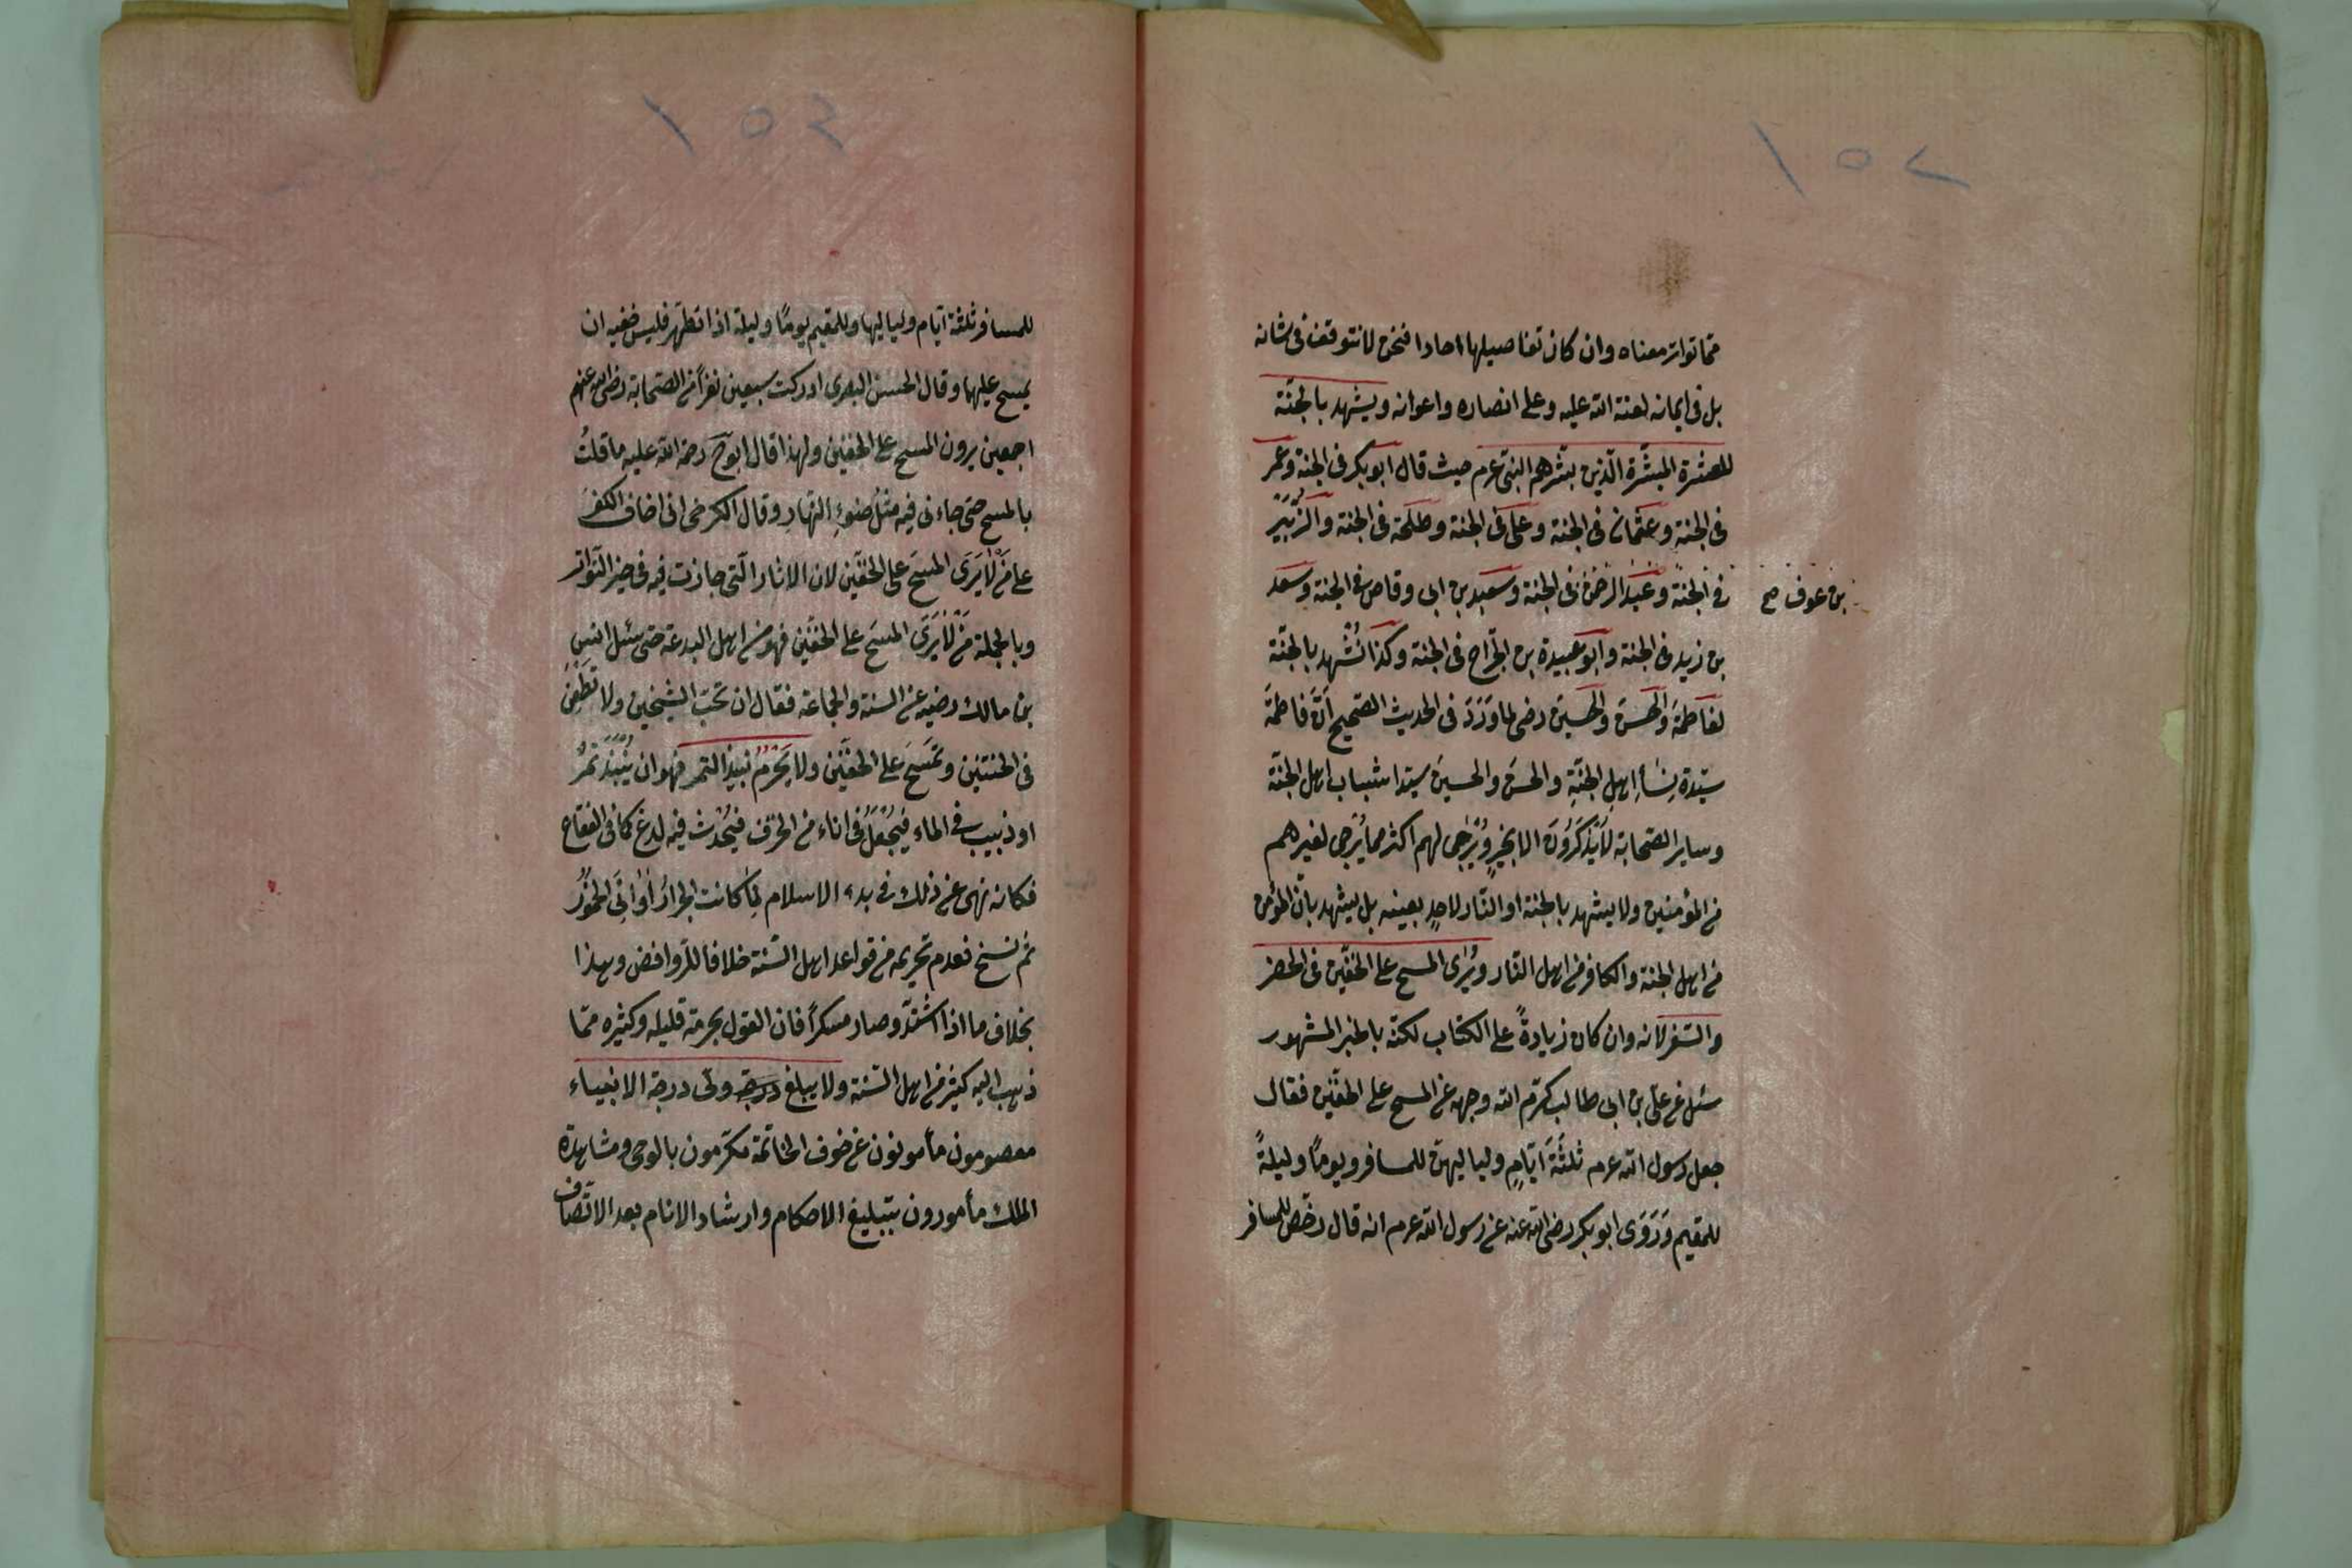 ١٥٢
مما تواتر معناه وان كان تفاصيلها احادا فنحن لا نتوقف فى شانه
بل فى ايمانه لعنة الله عليه وعلى انصاره واعوانه ويشهد بالجنّة
للعشرة المبشّرة الّذين بشّرهم النبىّ عم حيث قال ابو بكر فى الجنة وعمر
فى الجنةِ وعثمان فى الجنة وعلى فى الجنة وطلحة فى الجنة والزُّبَيْرُ
فى الجنّة وعبد الرحمن فى الجنة وسعيد بن ابى وقاص فى الجنة وسعد
بن عوف صح
بن زيد فى الجنة وابو عبيدة بن الجّراح فى الجنة وكذا نُشْهد بالجنّة
لفاطمَةَ والحسن والحسين رضى لما وَرَدَ فى الحديث الصحيح انّ فاطمَة
سيّدة نِسَأِ اهلِ الجنّةِ والحسنَ والحسينَ سيّدا شباب اهل الجنّة
وساير الصّحابة لا يُذْكَرُونَ الا بخيرٍ ويُرْجٰى لهم اكثر مما يُرْجى لغيرهم
من المؤمنين ولا يشهد بالجنة او النّار لاحدٍ بعينه بل يشهد بانّ المؤمن
من اهل الجنة والكافر من اهل النّار ويُرٰى المسح على الخفّين فى الحضر
والسّفر لانه وان كان زيادةً على الكتاب لكنّه بالخبر المشهور
سئل عن علىّ بن ابى طالب كرّم الله وجهه عن المسح على الخفّين فقال
جعل رسول الله عم ثلثَةَ ايّامٍ ولياليهنّ للمسافر ويومًا وليلةً
للمقيم وَرَوَى ابو بكر رضى الله عنه عن رسول الله عم انه قال رخّص للمسافر
١٥٣
للمسافر ثلثة ايّام ولياليها وللمقيم يومًا وليلة اذا تطهّر فلبس خفيه ان
يمسح عليهما وقال الحسن البصرى ادركت سبعين نفرًا من الصّحابة رضى الله عنهم
اجمعين يرون المسح على الخفين ولهذا قال ابو ح رحمة الله عليه ما قلتُ
بالمسح حتى جاءنى فيه مثلُ ضَوْءِ النّهارِ وقال الكرخى انى اخاف الكفرَ
على من لا يَرَى المسحَ على الخفّين لان الاثار الّتى جازت فيه فى حيز التّواتر
وبالجملة من لا يَرَى المسحَ على الخفّين فهو من اهل البدعة حتى سئل انس
بن مالك رضيه عن السنة والجماعة فقال ان تحبّ الشيخين ولا تطعن
فى الختنين وتَمْسَحَ على الخفّين ولا يَحْرُمُ نبيذ التمر فهو ان يُنْبَذَ تَمْرٌ
او زبيب فى الماء فيُجْعَلُ فى اناء من الخزف فيُحْدث فيه لدغ كما فى الفقاع
فكانه نهى عن ذلك فى بدء الاسلام لما كانت الجرارُ اَوَانِىَ الخمورُ
ثم نسخ فعدم تحريمه من قواعد اهل السّنة خلافا للرّوافض وهذا
بخلاف ما اذا اشتدّ وصار مسكراً فان القول بحرمة قليله وكثيره ممّا
ذهب اليه كثير من اهل السّنة ولا يبلغ درجة ولى درجة الانبياء
معصومون مأمونون عن خوف الخاتمة مكرّمون بالوحى ومشاهدة
الملك مأمورون بتبليغ الاحكام وارشاد الانام بعد الاتّصاف